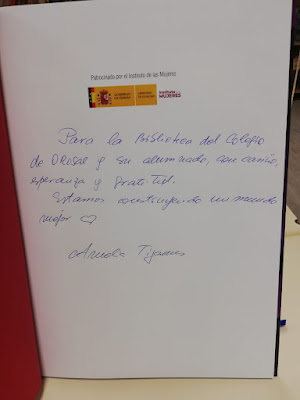 Patrocinado por el Instituto de las Mujeres
GOBIERNO DE ESPAÑA MINISTERIO DE IGUALDAD Instituto de las MUJERES
Para la Biblioteca del Colegio
de Orosal y su alumnado, con cariño,
esperanza y gratitud.
Estamos construyendo un mundo
mejor ♡